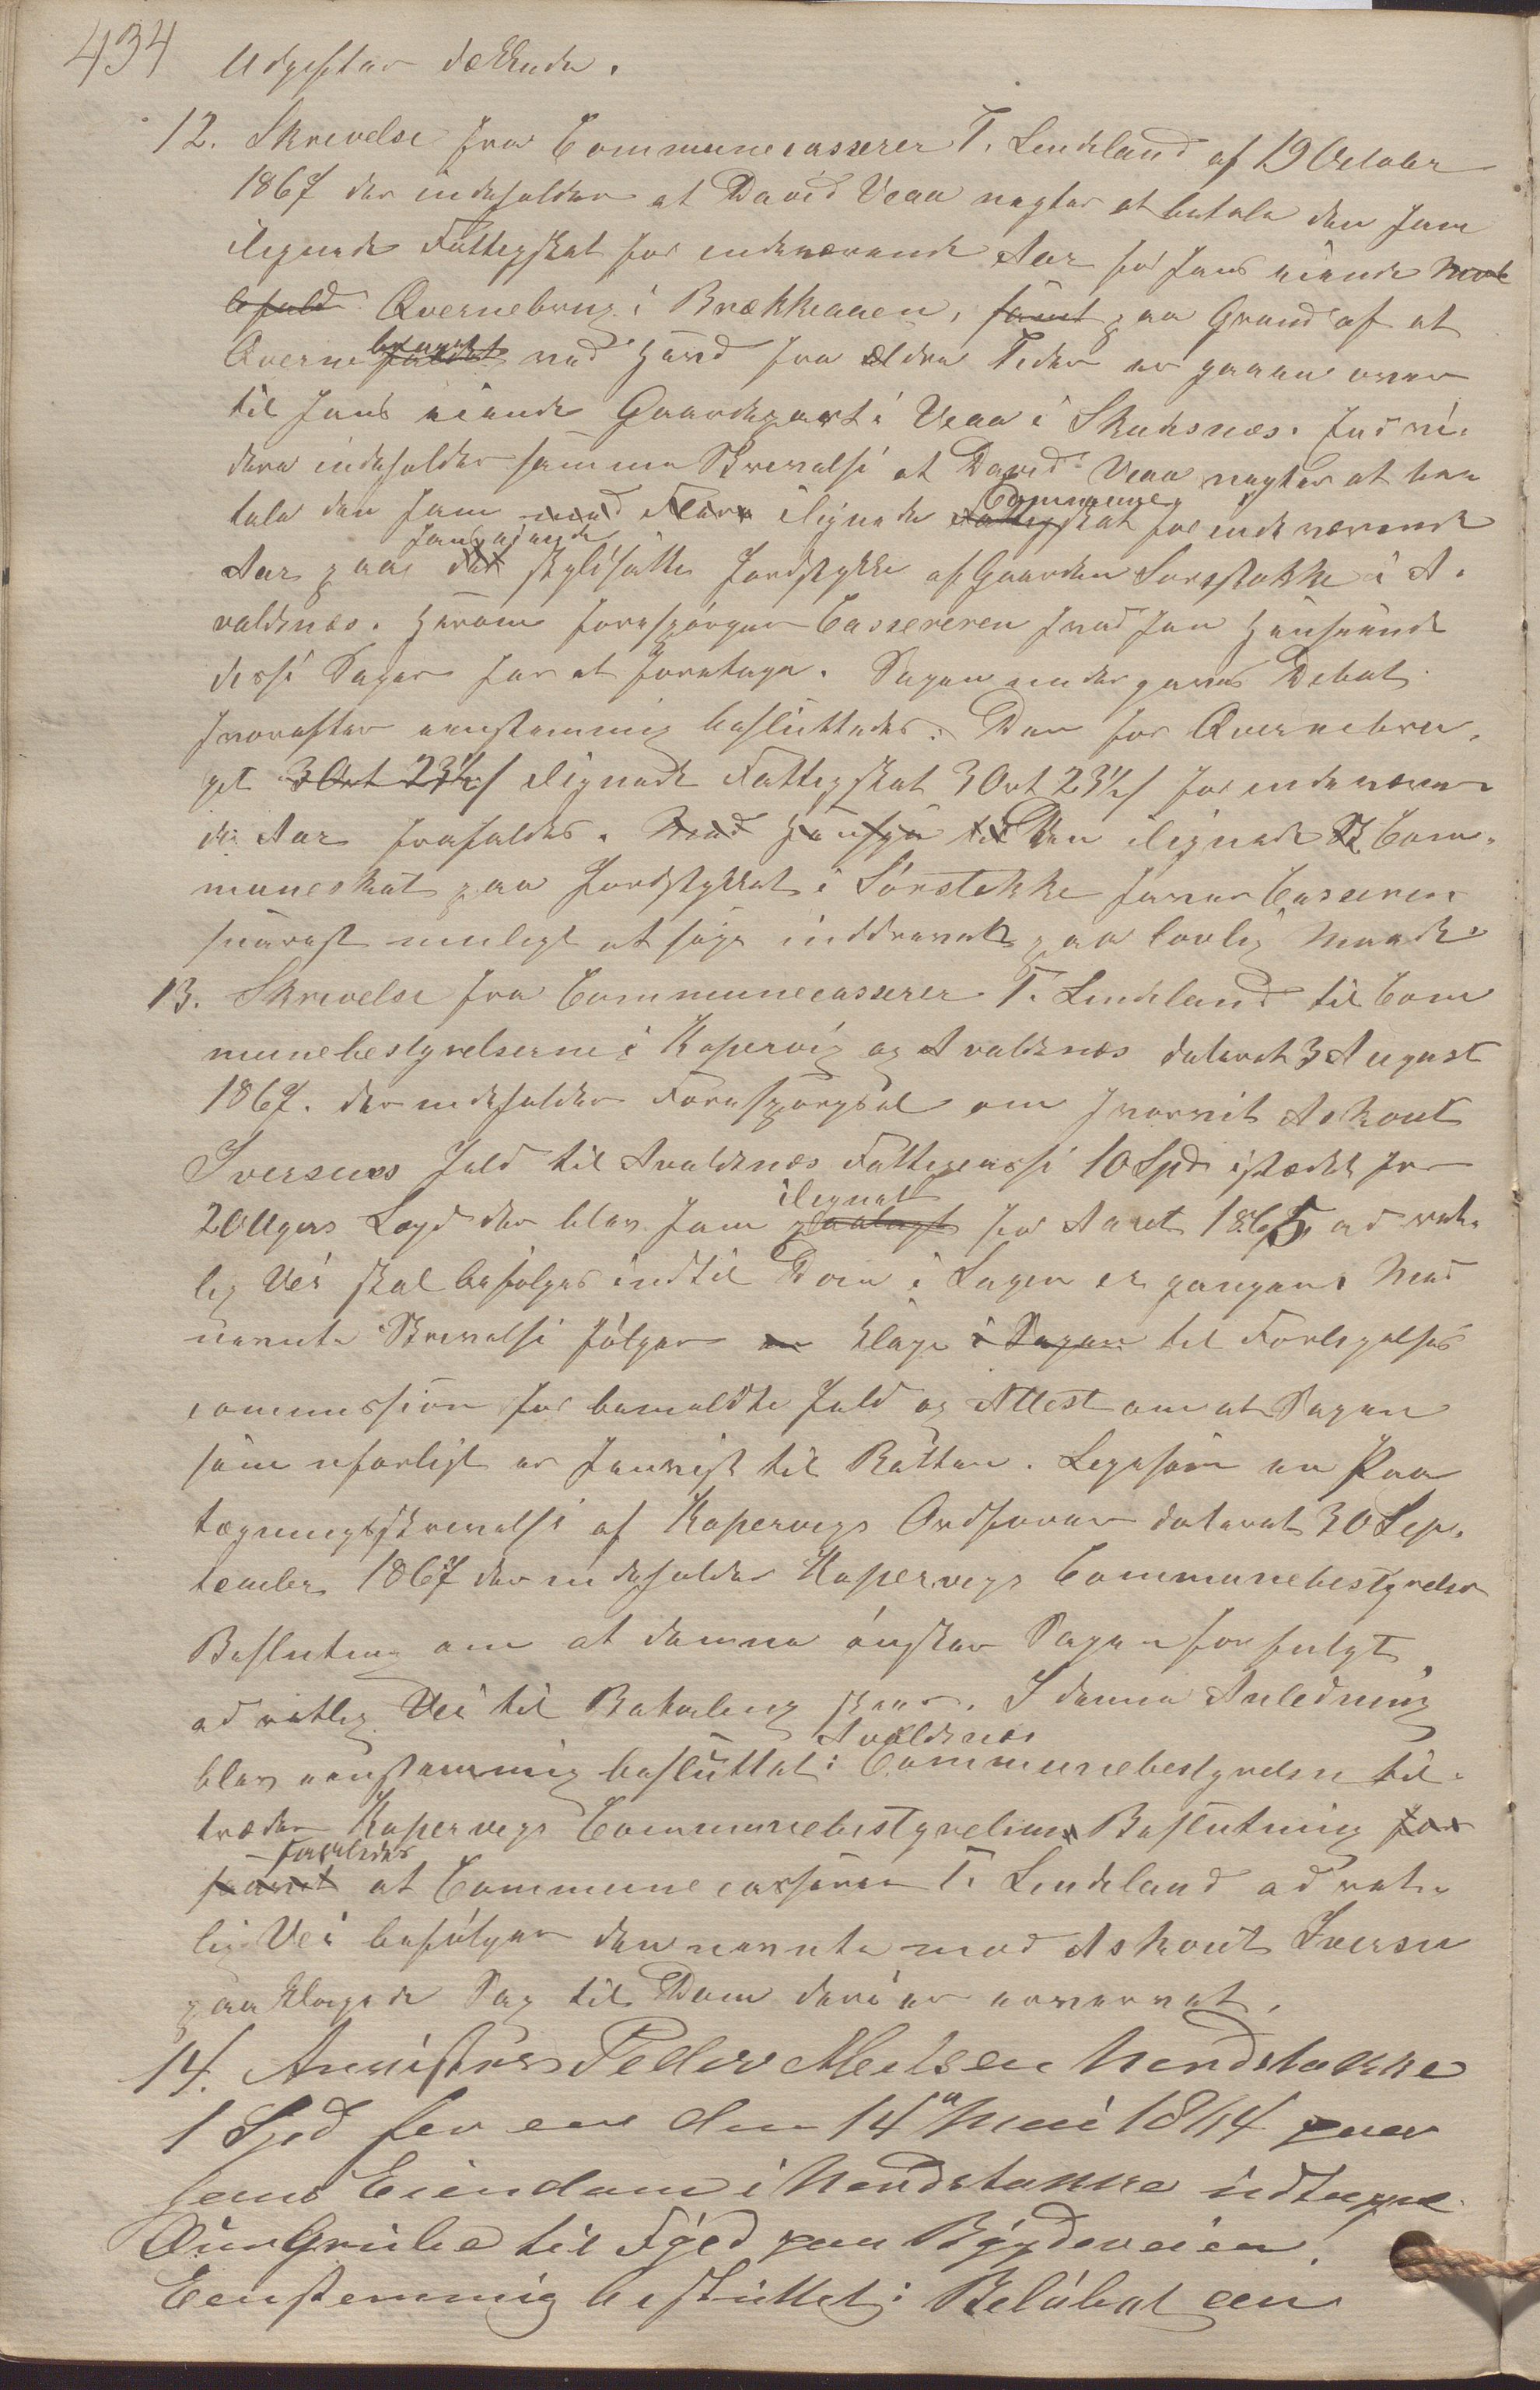 434
Udgifter dækkede.
12. Skrivelse fra Communecasserer T. Lindeland af 19 October
1867 der indeholder at David Veaa negter at betale den ham
ilignede Fattigskat for indeværende Aar for hans eiende
Qvernebrug i Brækkeaaen, samt paa Grund af at
Qvernebruget med Hævd fra ældre Tider er gaaen over
til hans eiende Gaardepart i Veaa i Skudesnæs. End vi-
dere indeholder samme Skrivelse at David Veaa negter at be-
tale den ham med Flere ilignede Fattig Communeskat for indeværende
Aar paa det hans eiende skyldsatte Jordstykke af Gaarden Sørstokke i A-
valdsnæs. Herom forespørger Cassereren hvad han Henseende
disse Sager har at foretage. Sagen undergaves Debat
hvorefter eenstemmig besluttedes: Den for Qvernebru-
get 3 Ort 23½ s ilignede Fattigskat 3 Ort 23½ s for indeværen-
de Aar frafaldes. Med Hensyn til Den ilignede Com-
muneskat paa Jordstykket i Sørstokke haver Casseren
snarest muligt at søge inddrevet paa lovlig Maade.
13. Skrivelse fra Communecasserer T. Lindeland til Com
munebestyrelserne i Kopervig og Avaldsnæs dateret 3 August
1867. der indeholder Forespørgsel om hvorvit Askout
Iversens Gjeld til Avaldsnæs Fattigcasse 10 Spd istedet for
20 Ugers Lægd der blev ham paalagt ilignet for Aaret 1865 ad ret-
lig Vei skal befølges indtil Dom i Sagen er gangen. Med
nævnte Skrivelse følger en Klage i Sagen til Forligelses
commission for bemeldte Gjeld og Attest om at Sagen
som uforligt er henvist til Retten. Ligesom en Paa
tegningsskrivelse af Kopervigs Ordfører dateret 30 Sep-
tember 1867 der indeholder Kopervigs Communebestyrelses
Beslutning om at denne ønsker Sagen forfulgt
ad retlig Vei til Betaling skeer. I denne Anledning
blev eenstemmig besluttet: Avaldsnæs Communebestyrelse til-
træder Kopervigs Communebestyrelses Beslutning for
saavet saaledes at Communecasserer T. Lindeland ad ret-
lig Vei befølger den nævnte mod Askout Iversen
paaklagede Sag til Dom deri er erhvervet.
14. Anvistes Peder Meilsen Nordstokke
1 Spd for en den 14de Mai 1864 paa
hans Eiendom i Nordstokke udtagne
Øurgrube til Fyld paa Bygdeveien.
Eenstemmig besluttet: Beløbet an